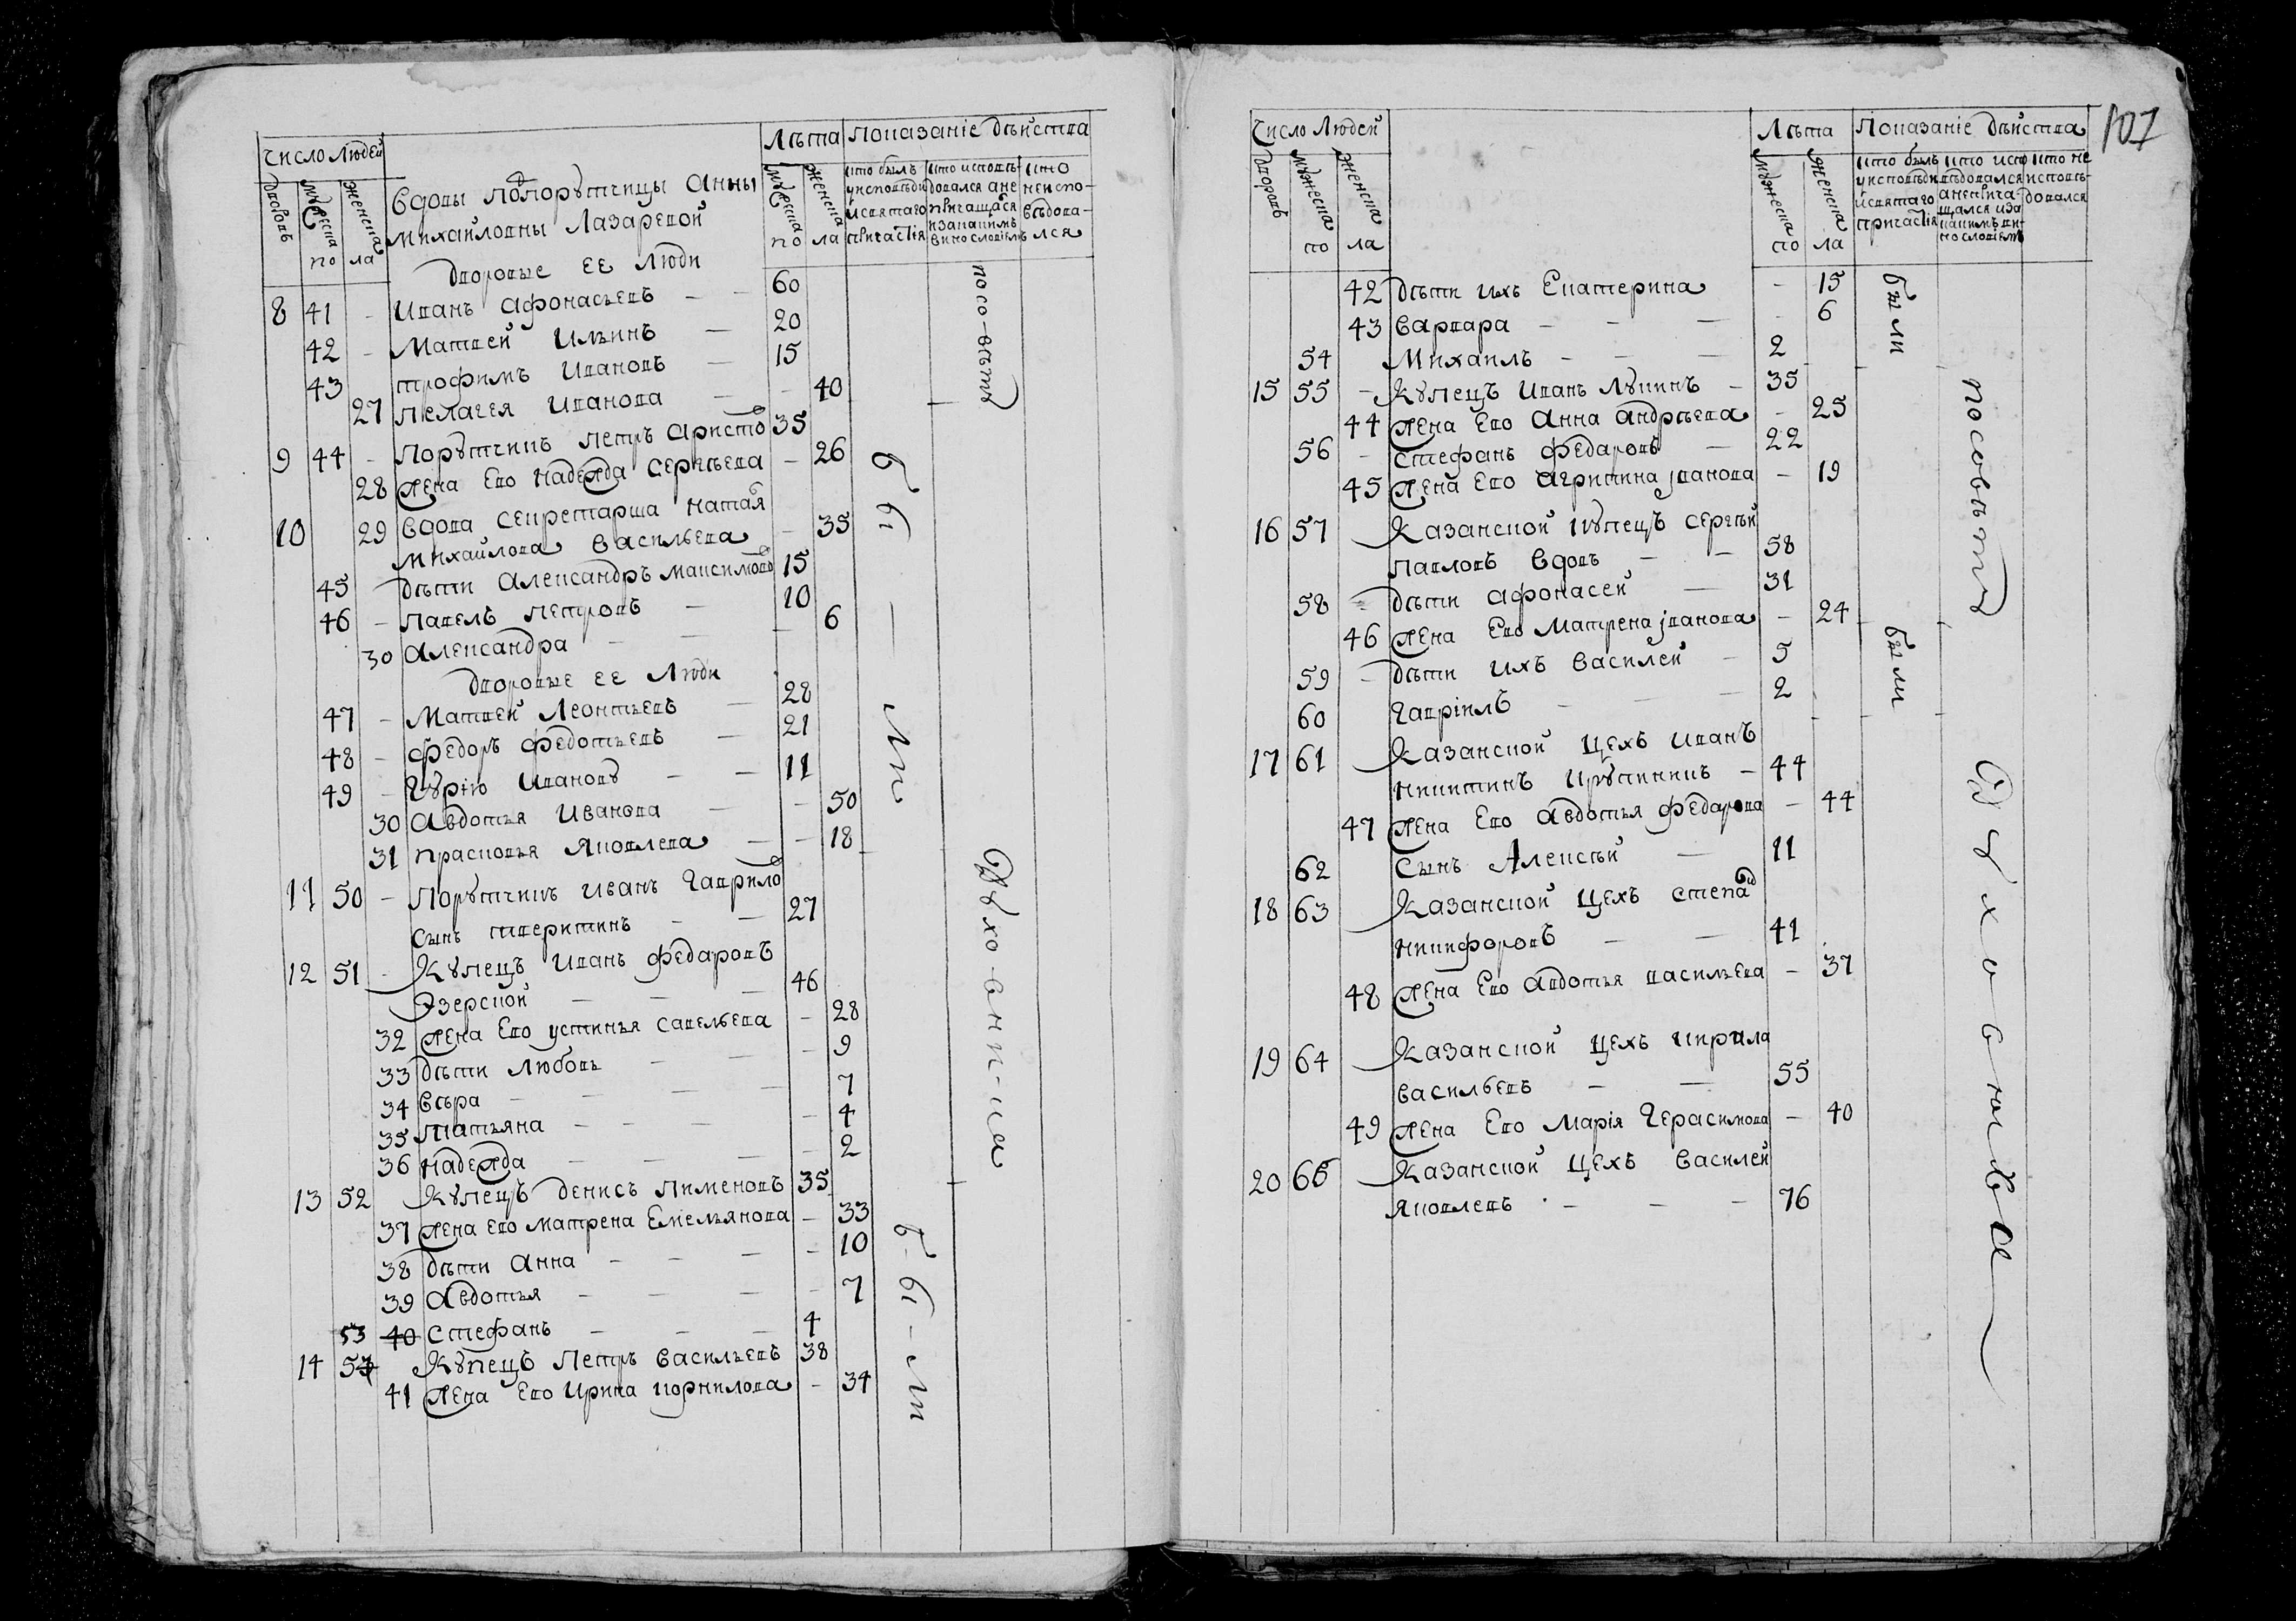 число Людей
Лѣта
Показанiе дѣйства
дворовъ
мужеска
женска
по ла
мужеска
женска
по ла
кто былъ у исповѣди и святаго причастiя
кто исповѣдовался а не причащался и за какимъ винословiемъ
кто не исповѣдовался
Вдовы Подпорутчицы Анны
Михайловны Лазаревой
дворовые ее Люди
8 41 - Иванъ Афонасьевъ - - 60
42 - Матвей Ильинъ - 20
43 Трофимъ Ивановъ - 15
27 Пелагея Иванова - - 40
9 44 - Порутчикъ Петръ Аристо 35
28 Жена Ево Надежда Сергѣева - 26
10 29 Вдова Секретарша Натая
Михайлова Васильева - 35
45 дѣти Александръ Максимовъ 15
46 - Павелъ Петровъ - 10
30 Александра - - - 6
дворовые ее Люди
47 - Матвей Леонтьевъ - 28
48 - Федоръ Федотьевъ - 21
49 - Гурiю Иванову - - 11
30 Авдотья Иванова - - 50
31 Прасковья Яковлева - - 18
11 50 - Порутчикъ Иванъ Гаврило
сынъ Тверитинъ - - 27
12 51 - Купецъ Иванъ Федаровъ
Эзерской - - - 46
32 Жена Ево Устинья Савельева - 28
33 дѣти Любовь - - - 9
34 Вѣра - - - - 7
35 Татьяна - - - - 4
36 Надежда - - - - 2
13 52 Купецъ Денисъ Пименовъ 35
37 Жена ево Матрена Емельянова - 33
38 дѣти Анна - - - - 10
39 Авдотья - - - - 7
53 40 Стефанъ - - - 4
14 54 Купецъ Петръ Васильевъ 38
41 Жена Ево Ирина Корнилова - 34
по со-вѣту
бы - ли
Духо-вни-ка
б-ы-ли
107
Число Людей
Лѣта
Показанiе дѣйства
дворовъ
мужеска
женска
по ла
мужеска
женска
по ла
кто былъ у исповѣди и святаго причастiя
кто исповѣдовался а не причащался и за какимъ винословiемъ
кто не исповѣдовался
42 дѣти ихъ Екатерина - 15
43 Варвара - - - - 6
54 Михаилъ - - - 2
15 55 - Купецъ Иванъ Лукинъ - 35
44 Жена Ево Анна Андрѣева - 25
56 - Стефанъ Федаровъ - 22
45 Жена Ево Агрипина Iванова - 19
16 57 Казанской купецъ Сергѣй
Павловъ Вдовъ - - 58
58 - дѣти Афонасей - 31
46 Жена Ево Матрена Iванова - 24
59 - дѣти ихъ Василей - 5
60 Гаврiилъ - - 2
17 61 Казанской Цехъ Иванъ
Никитинъ Крупинникъ - 44
47 Жена Ево Авдотья Федарова - 44
62 Сынъ Алексѣй - 11
18 63 Казанской Цехъ Степа
Никифоровъ - - 41
48 Жена Ево Авдотья Васильева - 37
19 64 Казанской Цехъ Кирила
Васильевъ - - 55
49 Жена Ево Марiя Герасимова - 40
20 65 Казанской Цехъ Василей
Яковлевъ - - - 76
были
по совѣту
были
Духовника